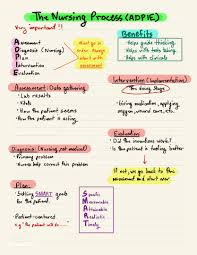 The Nursing Process (ADPIE)
Very important!!
Assessment
Diagnosis (Nursing)
Plan
Intervention
Evaluation
Must go in
order. Always
start with
assessment
Benefits
Helps guide teaching.
Helps with tests.
Helps with clinicals
Assessment: Data gathering
• Lab results
• Vitals
• How the patient is doing
How the patient is acting.
Intervention (Implementation)
The doing stage
• Giving medication, applying
oxygen, wound care, etc.
Diagnosis (Nursing, not medical)
• Nursing problem
• Nurses help correct this problem
Evaluation
• Did the interventions work?
• Is the patient feeling better?
If not, we go back to the
assessment and start over.
Plan:
• Setting SMART goals
for the patient.
• Patient-centered
e.g "the patient will do ...."
Specific
Measurable
Attainable
Realistic
Timely